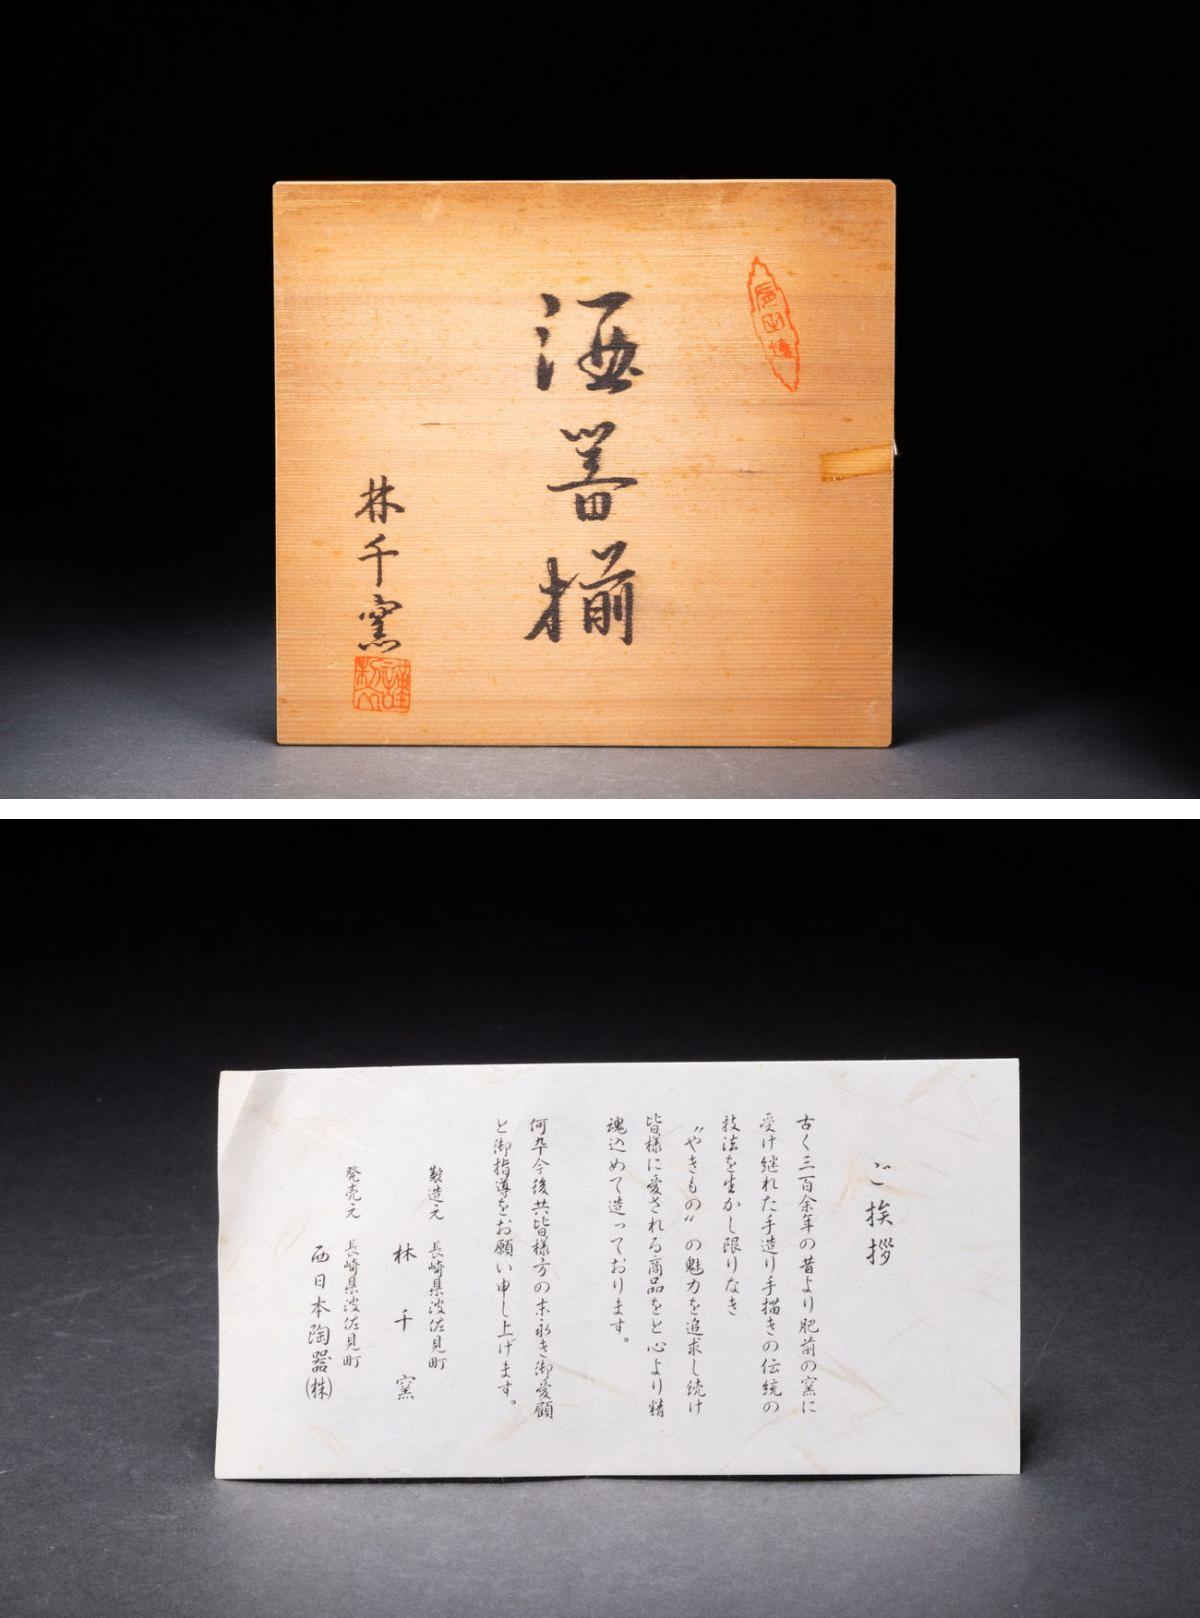 酒器揃
林千窯
ご挨拶
古く三百余年の昔より肥前の窯に
受け継れた手造り手描きの伝統の
技法を生かし限りなき
〝やきもの〟の魅力を追求し続け
皆様に愛される商品をと心より精
魂込めて造っております。
何卒今後共皆様方の末永き御愛顧
と御指導をお願い申し上げます。
製造元 長崎県波佐見町
林千窯
発売元 長崎県波佐見町
西日本陶器(株)